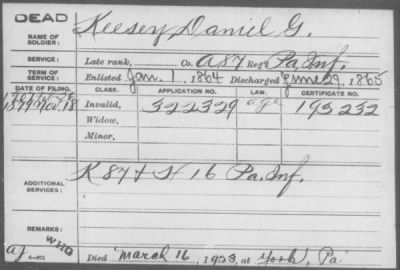 DEAD
NAME OF SOLDIER: Keesey Daniel G.
SERVICE: Late rank, Co. A 87 Reg't Pa. Inf.
TERM OF SERVICE: Enlisted Jan. 1, 1864 Discharged June 29, 1865
DATE OF FILING. CLASS. APPLICATION NO. LAW. CERTIFICATE NO.
18 Invalid, 322329 age 195232
Widow,
Minor,
ADDITIONAL SERVICES: K 87 & H 16 Pa. Inf.
REMARKS: WHO
Died March 16, 1933, at York, Pa.